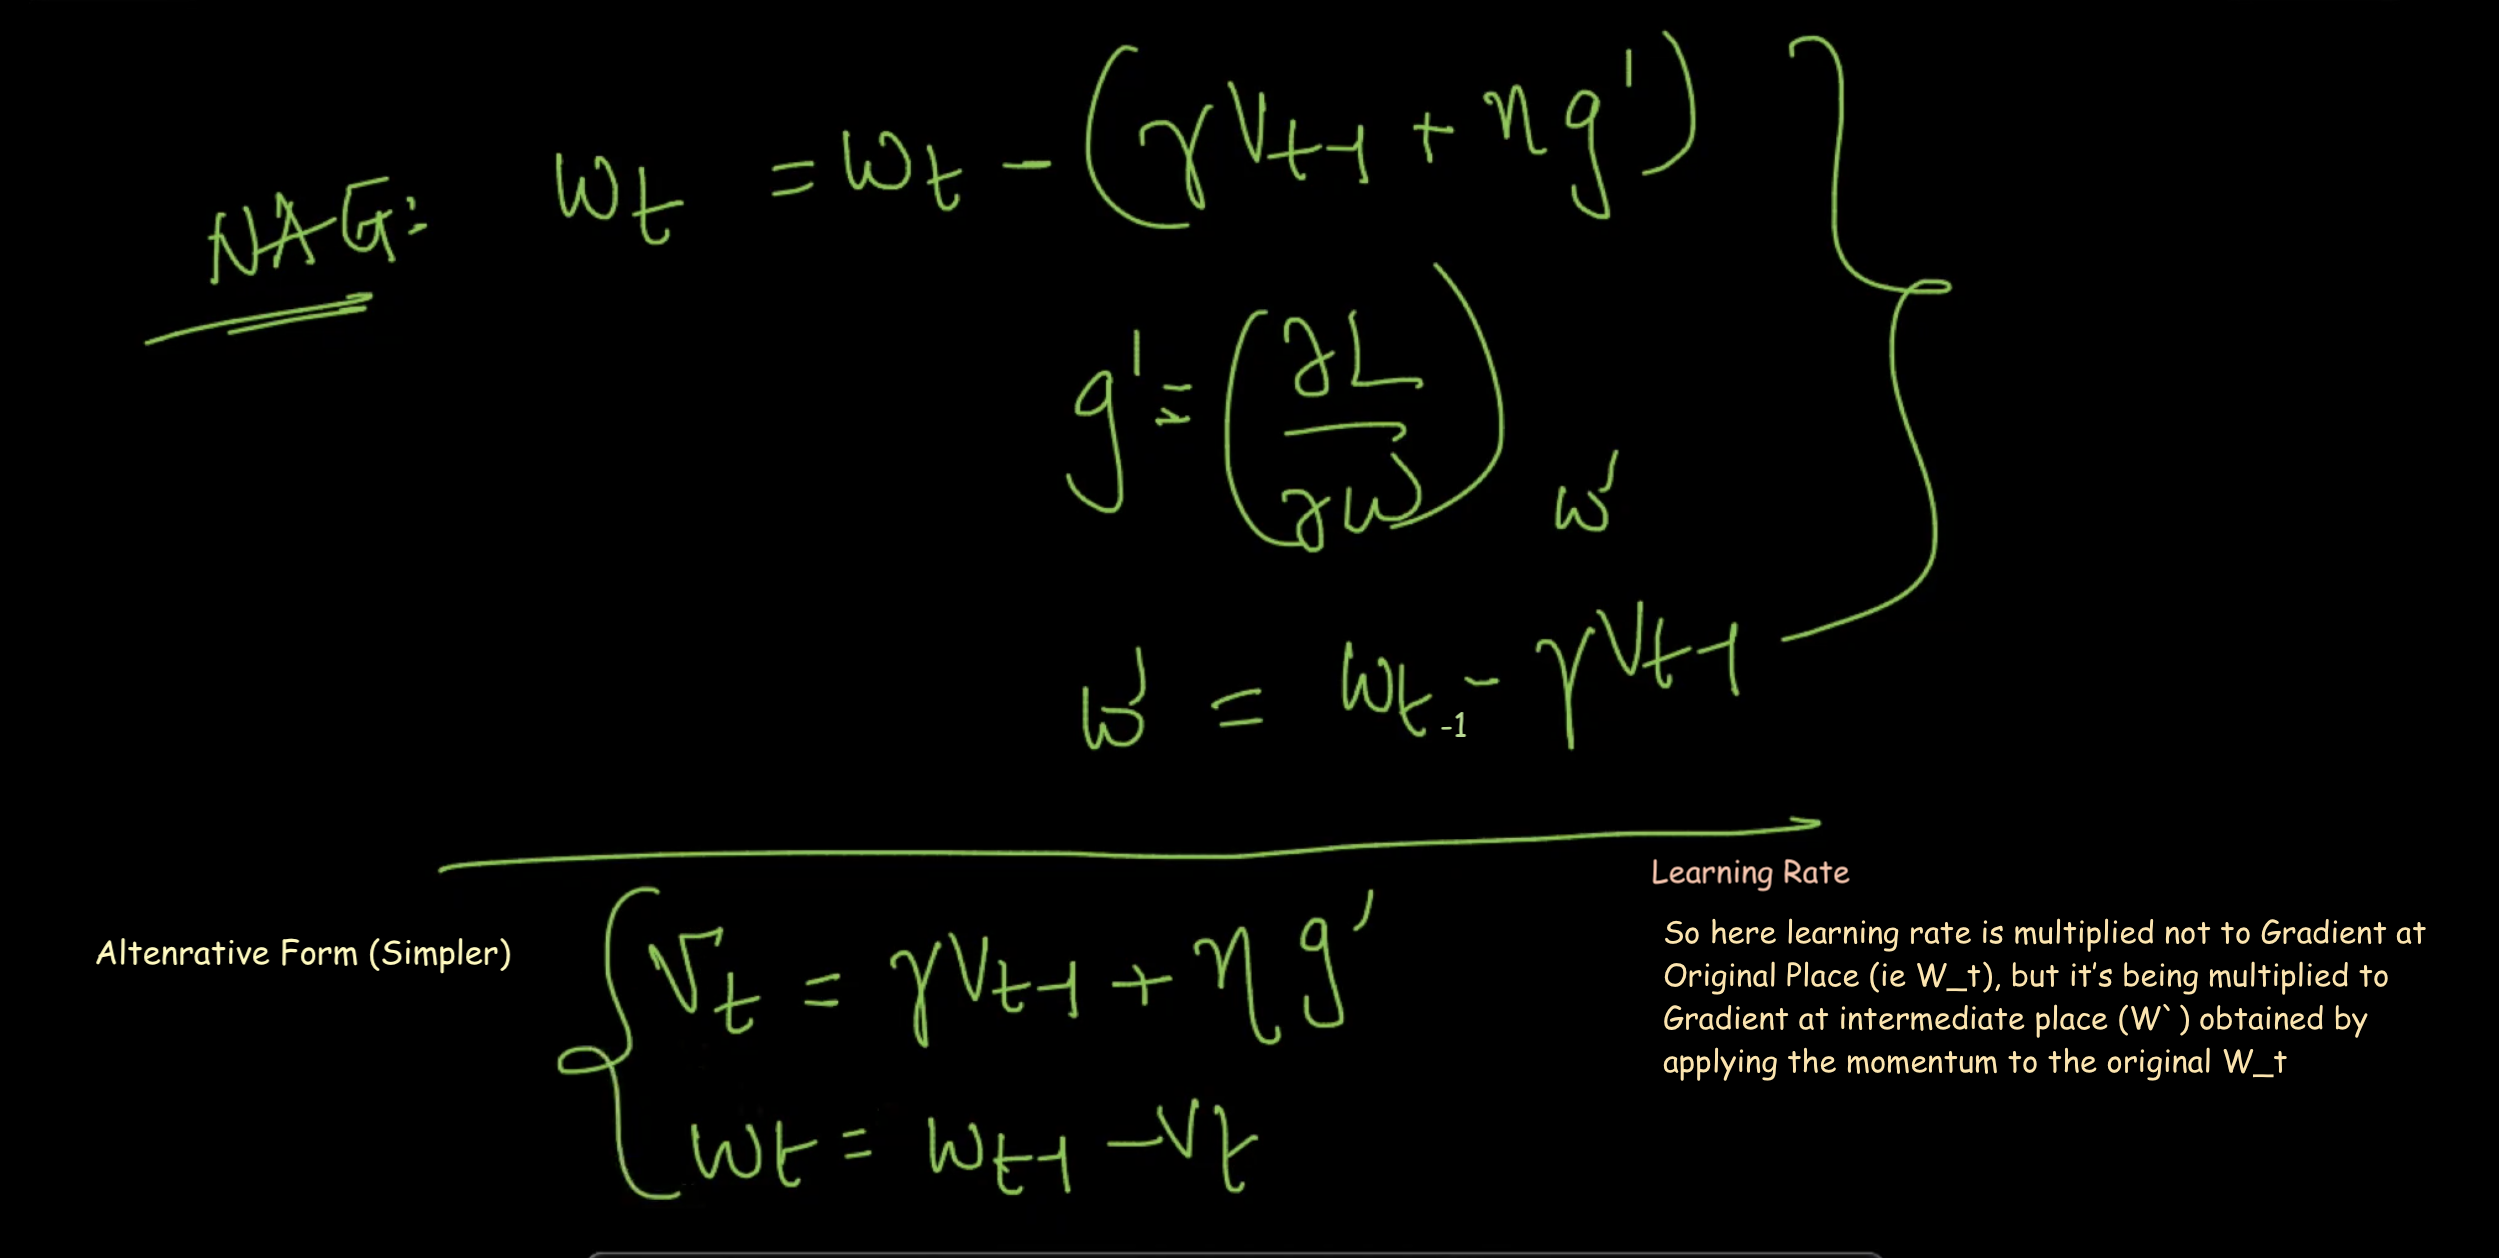 NAG: ω_t = ω_t - (γ V_{t-1} + η g')
g' = (∂L/∂ω)_{ω'}
ω' = ω_{t-1} - γ V_{t-1}
Learning Rate
Altenrative Form (Simpler)
V_t = γ V_{t-1} + η g'
ω_t = ω_{t-1} - V_t
So here learning rate is multiplied not to Gradient at
Original Place (ie W_t), but it's being multiplied to
Gradient at intermediate place (W`) obtained by
applying the momentum to the original W_t